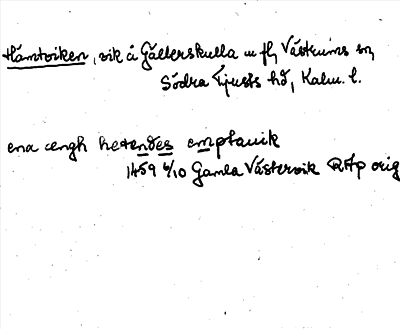 Hämtviken, vik å Gällerskulla m fl, Västrums sn,
Södra Tjusts hd, Kalm. l.
ena ængh hetendes emptauik
1459 6/10 Gamla Västervik RAp orig